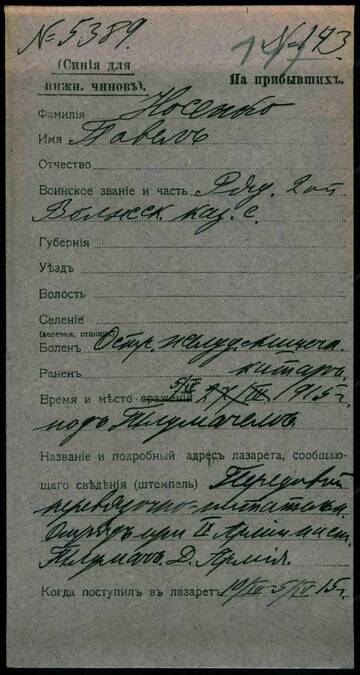 № 5389.
№ 143
(Синія для
нижн. чиновъ).
На прибывшихъ.
Фамилія Носенко
Имя Павелъ
Отчество
Воинское званіе и часть Ряд. 2ой
Волжск. каз. с.
Губернія
Уѣздъ
Волость
Селеніе
(деревня, станица)
Боленъ Остр. желуд.-кишечн.
Раненъ катарръ
5/IV
Время и мѣсто сраженія 1915 г.
подъ Тлумачемъ
Названіе и подробный адресъ лазарета, сообщаю-
щаго свѣдѣнія (штемпель) Передовой
перевязочно-питательн.
Отрядъ при
Тлумачъ. Д. Армія.
Когда поступилъ въ лазаретъ 19/IV-5/IV 15 г.